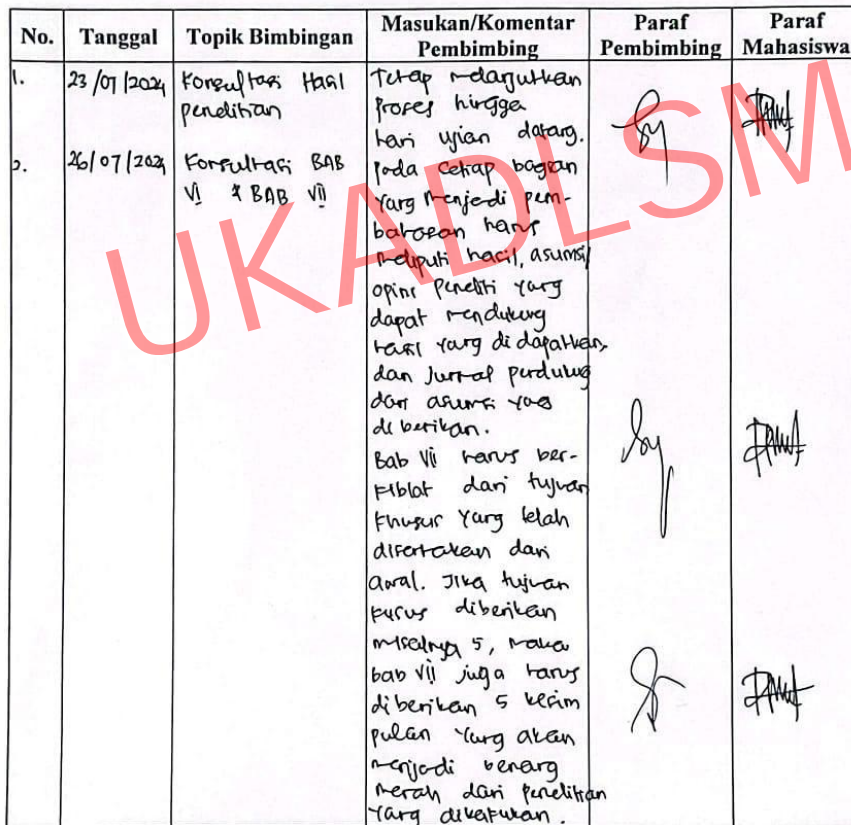 No. Tanggal Topik Bimbingan Masukan/Komentar Pembimbing Paraf Pembimbing Paraf Mahasiswa
1. 23/07/2024 Konsultasi Hasil Tetap melanjutkan
penelitian proses hingga
hari ujian datang.
2. 26/07/2024 Konsultasi BAB pada setiap bagian
VI & BAB VII yang menjadi pem-
bahasan harus
meliputi hasil, asumsi/
opini peneliti yang
dapat mendukung
hasil yang didapatkan,
dan jurnal pendukung
dari asumsi yang
diberikan.
Bab VII harus ber-
kiblat dari tujuan
khusus yang telah
disertakan dari
awal. Jika tujuan
kusus diberikan
misalnya 5, maka
bab VII juga harus
diberikan 5 kesim
pulan yang akan
menjadi benang
merah dari penelitian
yang dilakukan.
UKADLSM